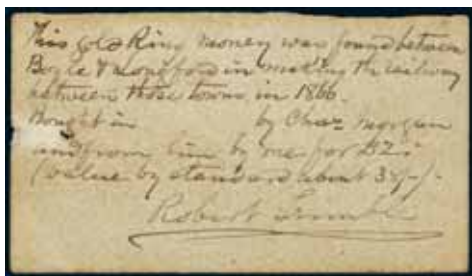 This gold Ring money was found between
Boyle & Longford in making the railway
between those towns in 1866.
Bought in by Chas. Morgan
and from him by me for £2
(value by standard about 38/-)
Robert